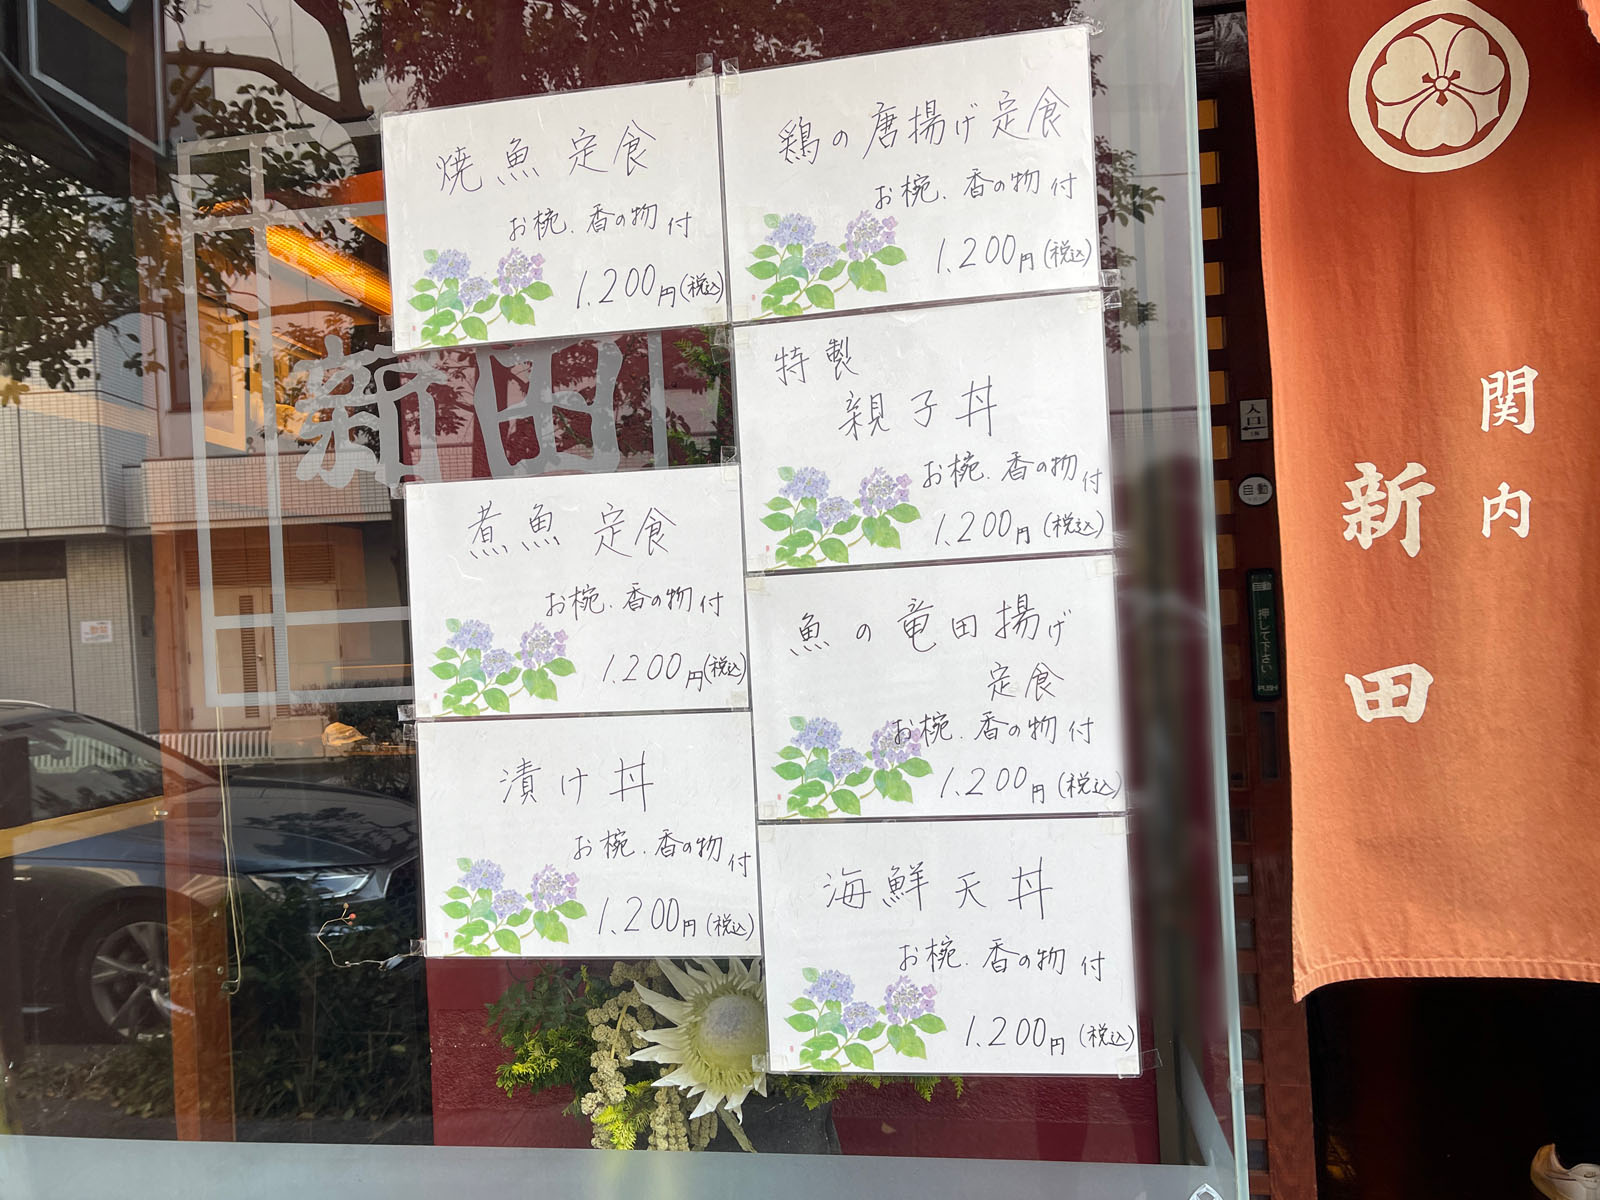 焼魚定食
お椀.香の物付
1.200円(税込)
鶏の唐揚げ定食
お椀.香の物付
1.200円(税込)
特製
親子丼
お椀.香の物付
1.200円(税込)
新田
煮魚定食
お椀.香の物付
1.200円(税込)
魚の竜田揚げ
定食
お椀.香の物付
1.200円(税込)
漬け丼
お椀.香の物付
1.200円(税込)
海鮮天丼
お椀.香の物付
1.200円(税込)
入口
自動
自動
押して下さい
PUSH
関内
新田